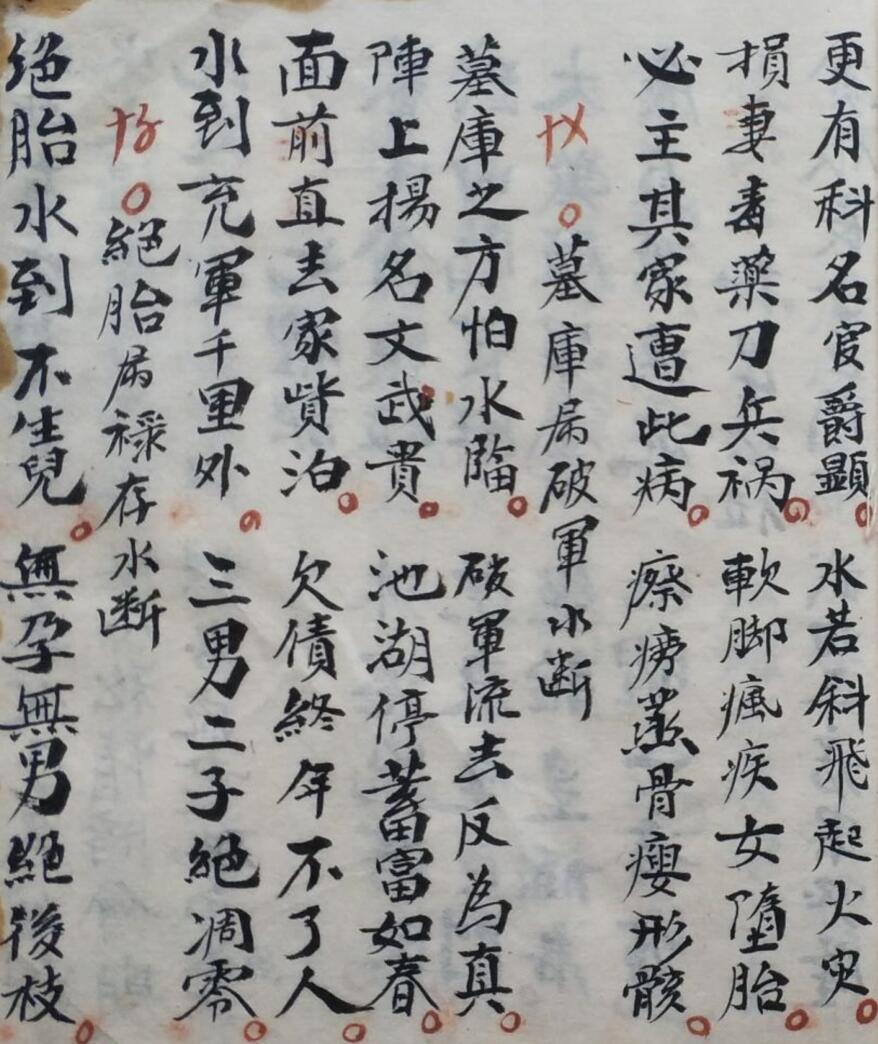 更有科名官爵顯 水若斜飛起火灾
損妻毒藥刀兵禍 軟脚瘋疾女墮胎
必主其家遭此病 瘵痨蒸骨瘿形骸
十乂 墓庫属破軍水断
墓庫之方怕水臨 破軍流去反為真
陣上揚名文武貴 池湖停蓄富如春
面前直去家貲泊 欠債終年不了人
水到充軍千里外 三男二子絶凋零
絕胎属禄存水断
绝胎水到不生兒 無孕無男絕後枝